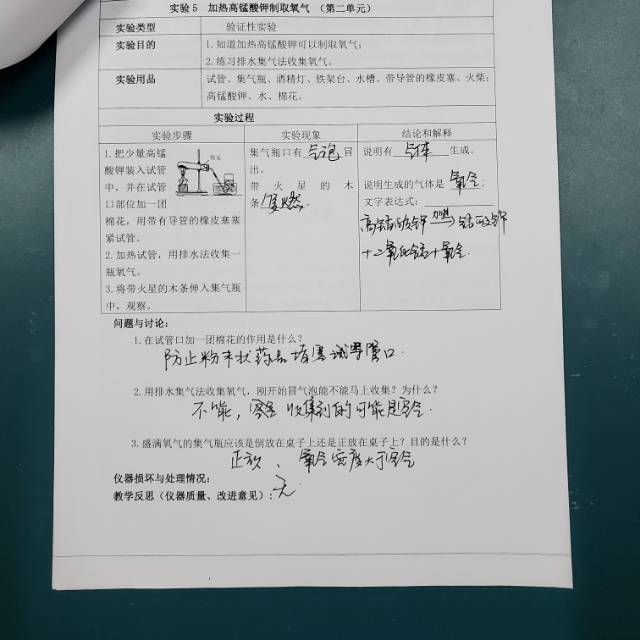 实验5 加热高锰酸钾制取氧气（第二单元）
实验类型 验证性实验
实验目的 1.知道加热高锰酸钾可以制取氧气；
2.练习排水集气法收集氧气。
实验用品 试管、集气瓶、酒精灯、铁架台、水槽、带导管的橡皮塞、火柴；
高锰酸钾、水、棉花。
实验过程
实验步骤 实验现象 结论和解释
1.把少量高锰
酸钾装入试管
中，并在试管
口部位加一团
棉花，用带有导管的橡皮塞塞
紧试管。
2.加热试管，用排水法收集一
瓶氧气。
3.将带火星的木条伸入集气瓶
中，观察。
集气瓶口有气泡冒
出。
带火星的木
条复燃.
说明有气体生成。
说明生成的气体是氧气；
文字表达式：
高锰酸钾 加热 锰酸钾
+二氧化锰+氧气.
问题与讨论：
1.在试管口加一团棉花的作用是什么？
防止粉末状药品堵塞试管口.
2.用排水集气法收集氧气，刚开始冒气泡能不能马上收集？为什么？
不能，收集到的可能是空气.
3.盛满氧气的集气瓶应该是倒放在桌子上还是正放在桌子上？目的是什么？
正放、氧气密度大于空气
仪器损坏与处理情况：
教学反思（仪器质量、改进意见）：无